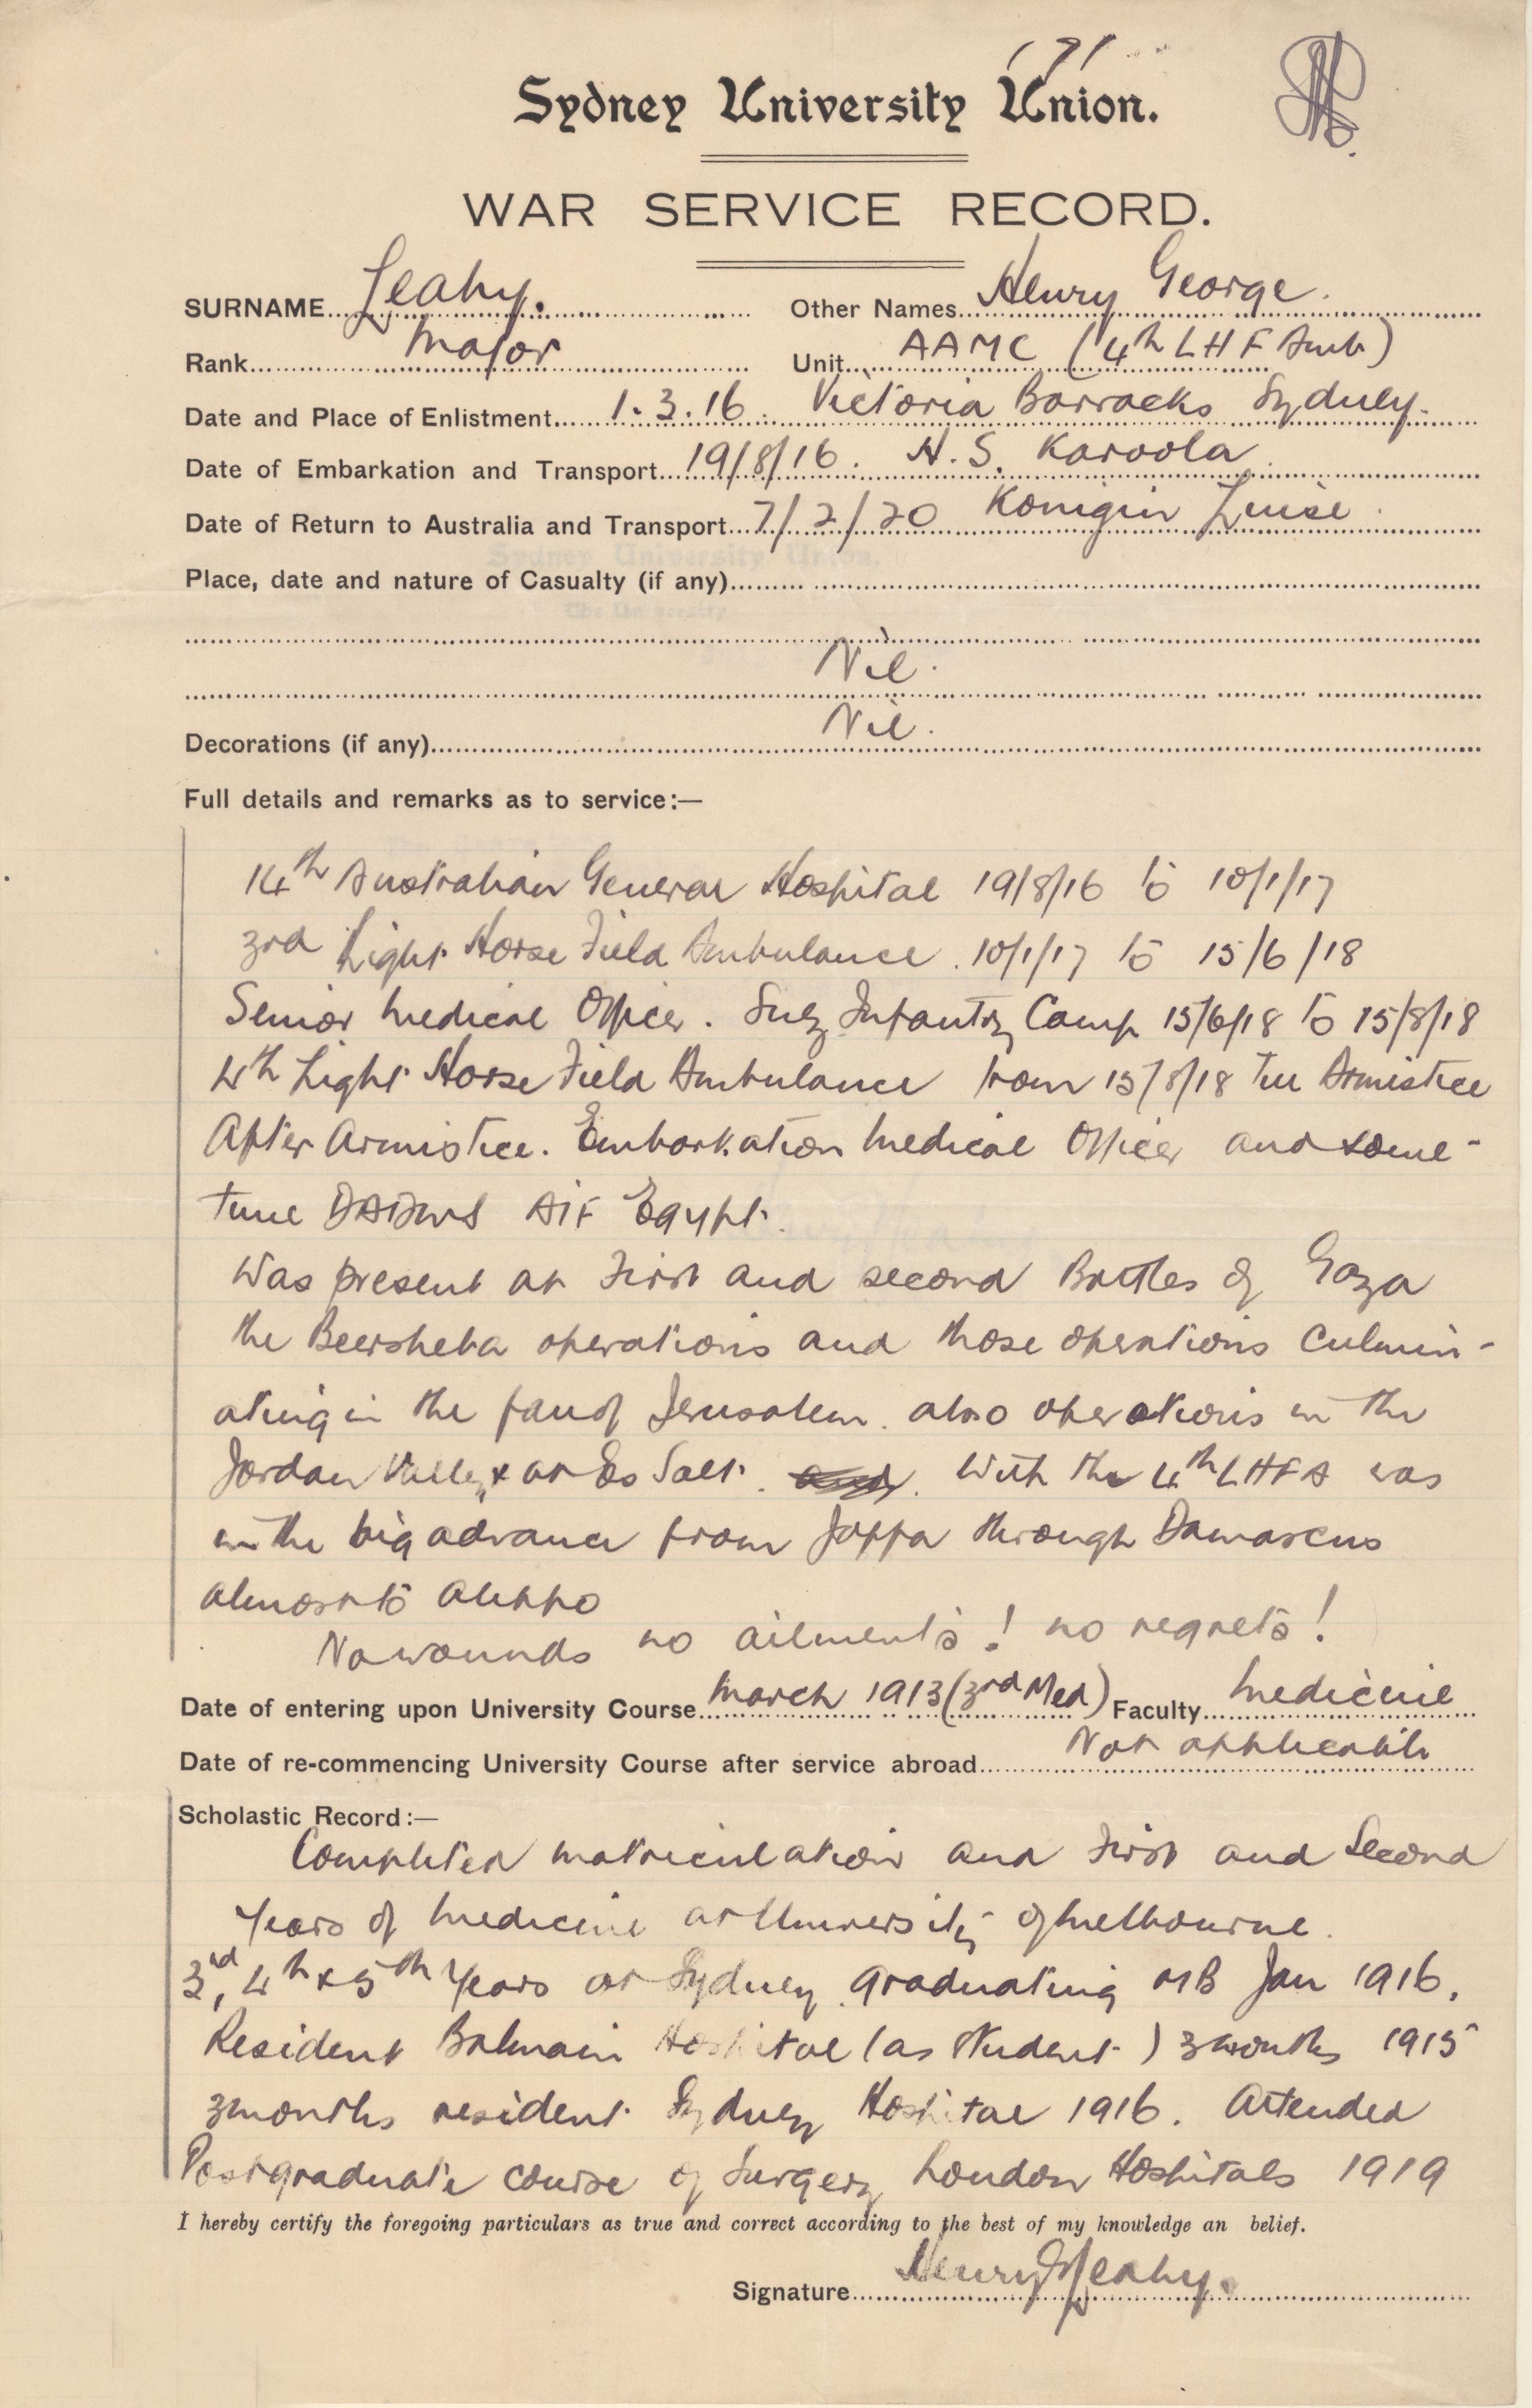 171
Sydney University Union.
WAR SERVICE RECORD.
SURNAME Leahy. Other Names Henry George.
Rank Major Unit AAMC (4th LHF Amb)
Date and Place of Enlistment 1.3.16. Victoria Barracks Sydney.
Date of Embarkation and Transport 19/8/16. H.S. Karoola
Date of Return to Australia and Transport 7/2/20 Konigin Luise.
Place, date and nature of Casualty (if any)
Nil.
Decorations (if any) Nil.
Full details and remarks as to service:—
14th Australian General Hospital 19/8/16 to 10/1/17
3rd Light Horse Field Ambulance. 10/1/17 to 15/6/18
Senior Medical Officer. Suez Infantry Camp 15/6/18 to 15/8/18
4th Light Horse Field Ambulance from 15/8/18 till Armistice
After Armistice. Embarkation Medical Officer and some-
time DADMS AIF Egypt.
Was present at First and second Battles of Gaza
the Beersheba operations and those operations culmin-
ating in the fall of Jerusalem. also operations in the
Jordan Valley & at Es Salt. and. With the 4th LHFA was
in the big advance from Jaffa through Damascus
almost to Aleppo
No wounds no ailments! no regrets!
Date of entering upon University Course March 1913 (3rd Med) Faculty Medicine
Date of re-commencing University Course after service abroad Not applicable
Scholastic Record:—
Completed matriculation and First and Second
Years of Medicine at University of Melbourne.
3rd, 4th & 5th Years at Sydney. graduating MB Jan 1916.
Resident Balmain Hospital (as student) 3 months 1915
3 months resident Sydney Hospital 1916. Attended
Postgraduate course of Surgery London Hospitals 1919
I hereby certify the foregoing particulars as true and correct according to the best of my knowledge an belief.
Signature Henry G Leahy.